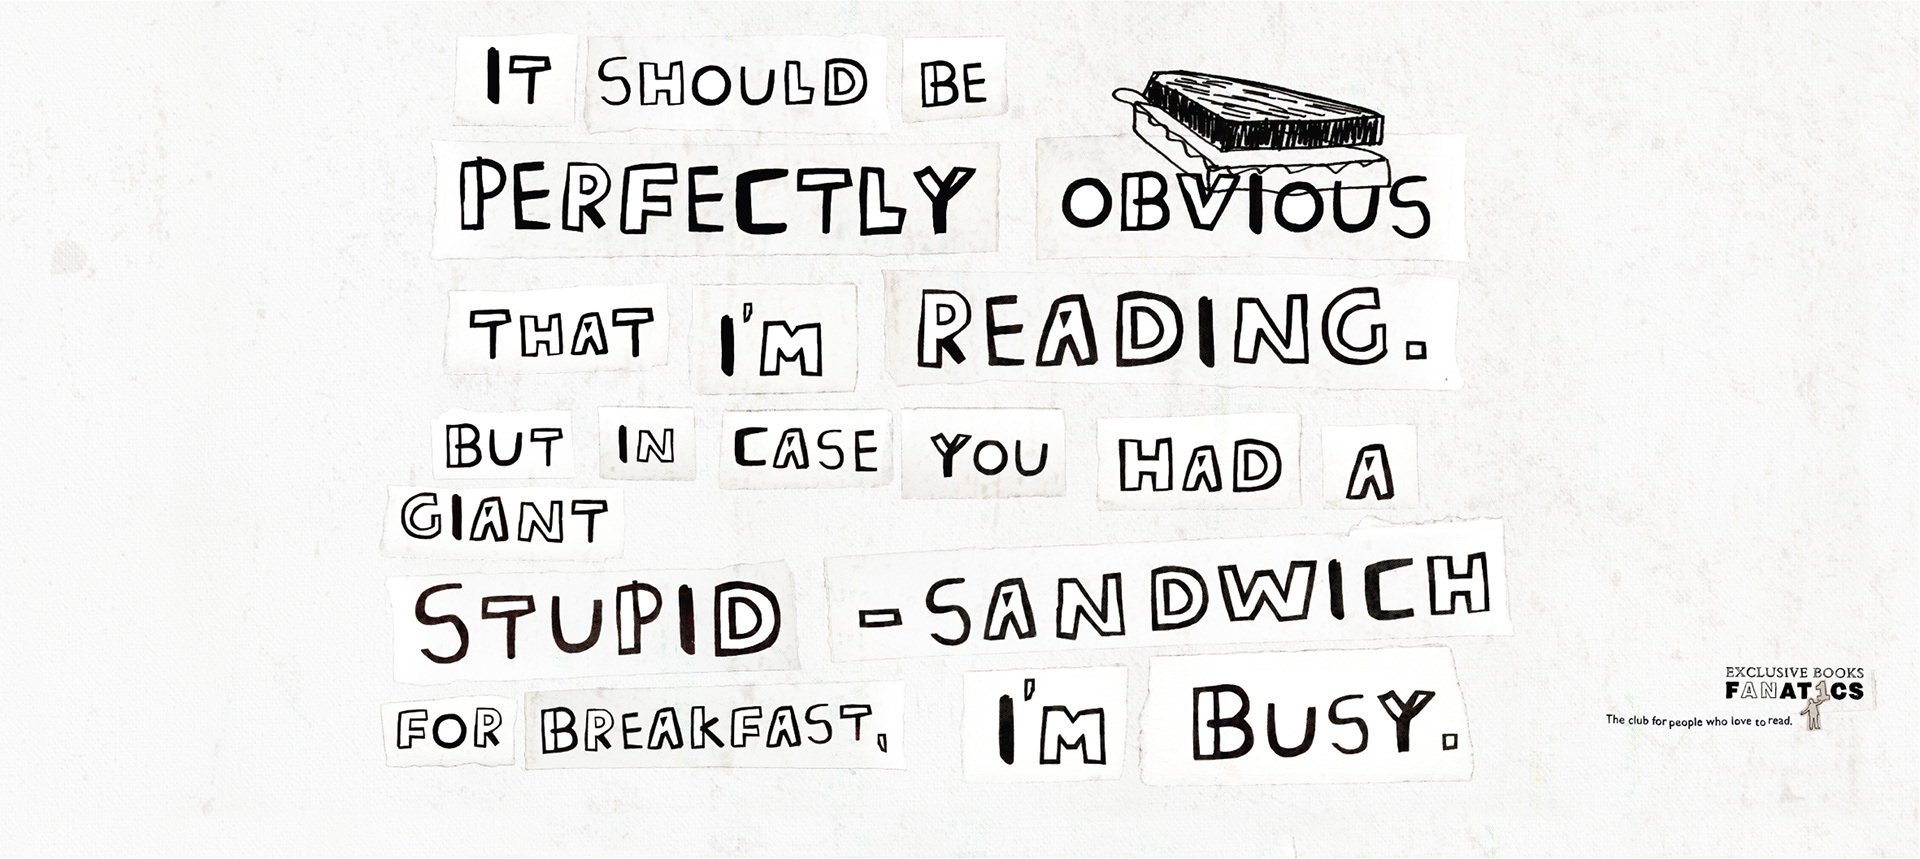 IT SHOULD BE
PERFECTLY OBVIOUS
THAT I'M READING.
BUT IN CASE YOU HAD A
GIANT
STUPID -SANDWICH
FOR BREAKFAST, I'M BUSY.
EXCLUSIVE BOOKS
FANATICS
The club for people who love to read.